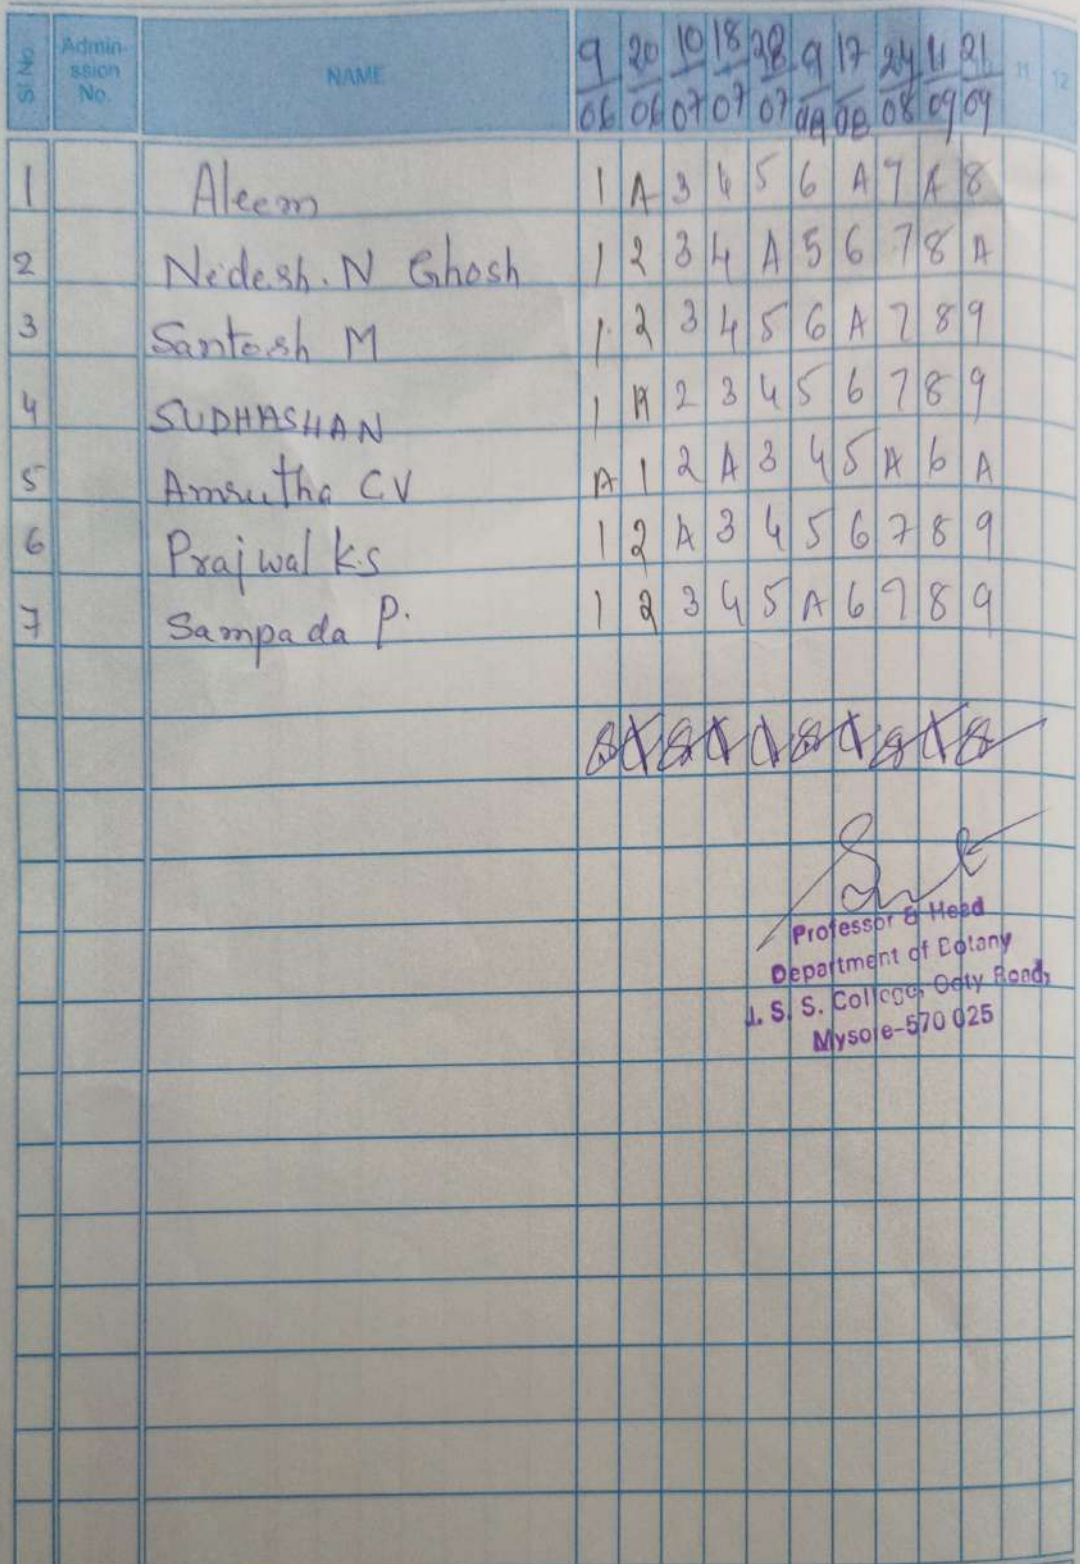 Sl No. Admin- ssion No. NAME 9/06 20/06 10/07 18/07 28/07 9/08 17/08 24/08 11/09 21/09 11 12
1 Aleem 1 A 3 4 5 6 A 7 A 8
2 Nedesh. N Ghosh 1 2 3 4 A 5 6 7 8 A
3 Santosh M 1 2 3 4 5 6 A 7 8 9
4 SUDHASHAN 1 A 2 3 4 5 6 7 8 9
5 Amrutha CV A 1 2 A 3 4 5 A 6 A
6 Prajwal K.S 1 2 A 3 4 5 6 7 8 9
7 Sampada P. 1 2 3 4 5 A 6 7 8 9
Professor & Head
Department of Botany
J. S. S. College, Ooty Road,
Mysore-570 025